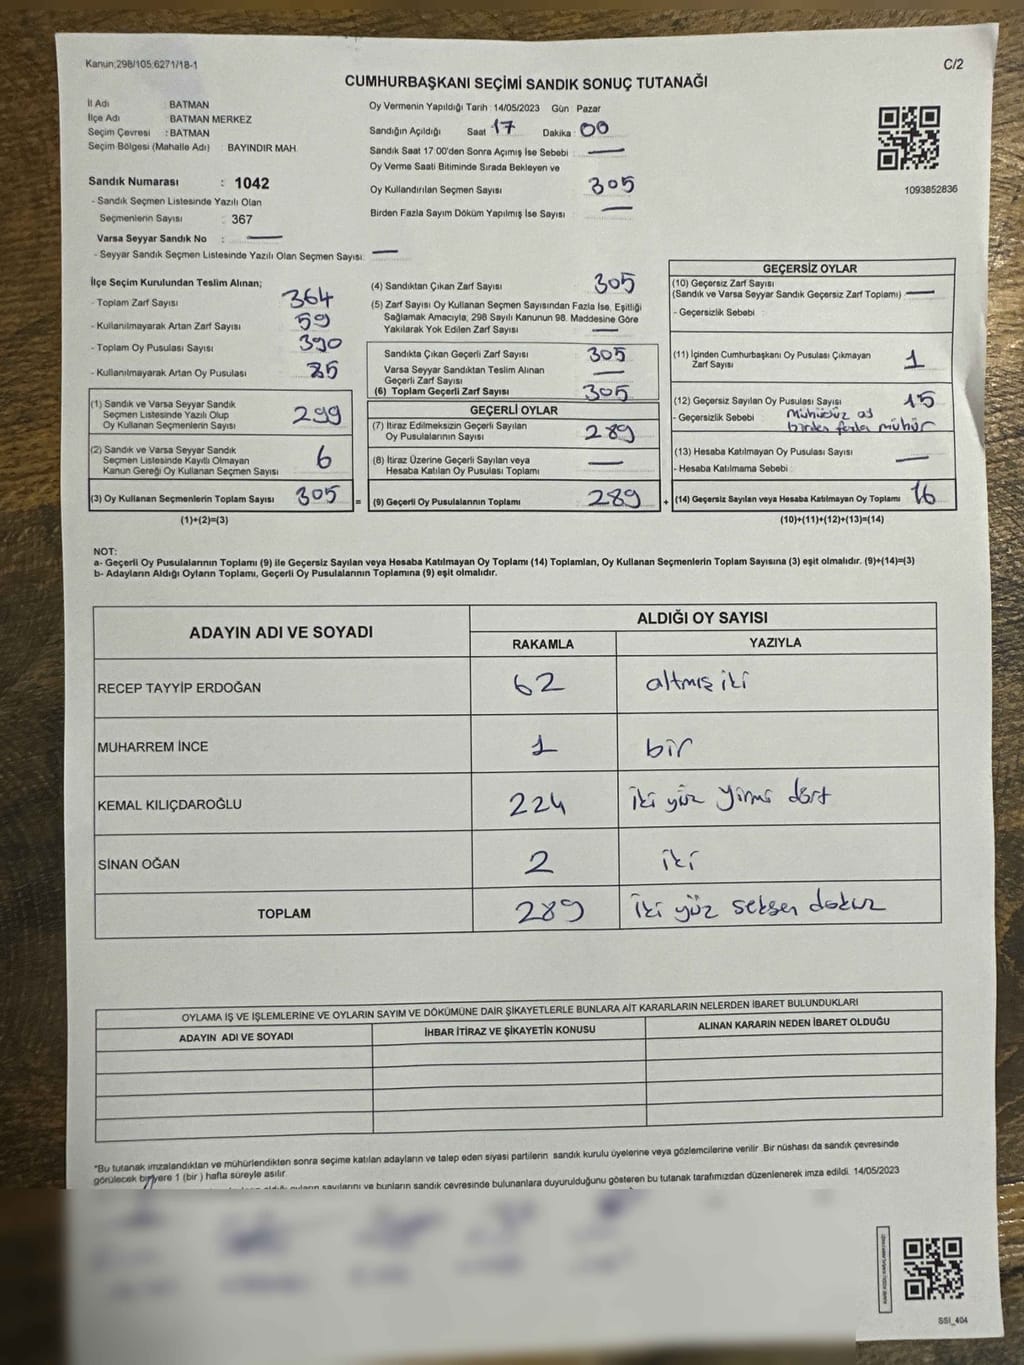 Kanun;298/105;6271/18-1
C/2
CUMHURBAŞKANI SEÇİMİ SANDIK SONUÇ TUTANAĞI
İl Adı : BATMAN
İlçe Adı : BATMAN MERKEZ
Seçim Çevresi : BATMAN
Seçim Bölgesi (Mahalle Adı) : BAYINDIR MAH.
Sandık Numarası : 1042
- Sandık Seçmen Listesinde Yazılı Olan
Seçmenlerin Sayısı : 367
Varsa Seyyar Sandık No : —
- Seyyar Sandık Seçmen Listesinde Yazılı Olan Seçmen Sayısı: —
Oy Vermenin Yapıldığı Tarih : 14/05/2023 Gün Pazar
Sandığın Açıldığı Saat 17 Dakika : 00
Sandık Saat 17:00'den Sonra Açımış İse Sebebi : —
Oy Verme Saati Bitiminde Sırada Bekleyen ve
Oy Kullandırılan Seçmen Sayısı : 305
Birden Fazla Sayım Döküm Yapılmış İse Sayısı : —
1093852836
İlçe Seçim Kurulundan Teslim Alınan;
- Toplam Zarf Sayısı 364
- Kullanılmayarak Artan Zarf Sayısı 59
- Toplam Oy Pusulası Sayısı 390
- Kullanılmayarak Artan Oy Pusulası 85
(1) Sandık ve Varsa Seyyar Sandık
Seçmen Listesinde Yazılı Olup
Oy Kullanan Seçmenlerin Sayısı 299
(2) Sandık ve Varsa Seyyar Sandık
Seçmen Listesinde Kayıtlı Olmayan
Kanun Gereği Oy Kullanan Seçmen Sayısı 6
(3) Oy Kullanan Seçmenlerin Toplam Sayısı 305 =
(1)+(2)=(3)
(4) Sandıktan Çıkan Zarf Sayısı 305
(5) Zarf Sayısı Oy Kullanan Seçmen Sayısından Fazla İse, Eşitliği
Sağlamak Amacıyla, 298 Sayılı Kanunun 98. Maddesine Göre
Yakılarak Yok Edilen Zarf Sayısı —
Sandıkta Çıkan Geçerli Zarf Sayısı 305
Varsa Seyyar Sandıktan Teslim Alınan
Geçerli Zarf Sayısı —
(6) Toplam Geçerli Zarf Sayısı 305
GEÇERLİ OYLAR
(7) İtiraz Edilmeksizin Geçerli Sayılan
Oy Pusulalarının Sayısı 289
(8) İtiraz Üzerine Geçerli Sayılan veya
Hesaba Katılan Oy Pusulası Toplamı —
(9) Geçerli Oy Pusulalarının Toplamı 289 +
GEÇERSİZ OYLAR
(10) Geçersiz Zarf Sayısı
(Sandık ve Varsa Seyyar Sandık Geçersiz Zarf Toplamı) —
- Geçersizlik Sebebi :
(11) İçinden Cumhurbaşkanı Oy Pusulası Çıkmayan
Zarf Sayısı 1
(12) Geçersiz Sayılan Oy Pusulası Sayısı 15
- Geçersizlik Sebebi : Mühürsüz
birden fazla mühür
(13) Hesaba Katılmayan Oy Pusulası Sayısı —
- Hesaba Katılmama Sebebi :
(14) Geçersiz Sayılan veya Hesaba Katılmayan Oy Toplamı 16
(10)+(11)+(12)+(13)=(14)
NOT:
a- Geçerli Oy Pusulalarının Toplamı (9) ile Geçersiz Sayılan veya Hesaba Katılmayan Oy Toplamı (14) Toplamları, Oy Kullanan Seçmenlerin Toplam Sayısına (3) eşit olmalıdır. (9)+(14)=(3)
b- Adayların Aldığı Oyların Toplamı, Geçerli Oy Pusulalarının Toplamına (9) eşit olmalıdır.
ADAYIN ADI VE SOYADI
ALDIĞI OY SAYISI
RAKAMLA YAZIYLA
RECEP TAYYİP ERDOĞAN 62 altmış iki
MUHARREM İNCE 1 bir
KEMAL KILIÇDAROĞLU 224 iki yüz yirmi dört
SİNAN OĞAN 2 iki
TOPLAM 289 iki yüz seksen dokuz
OYLAMA İŞ VE İŞLEMLERİNE VE OYLARIN SAYIM VE DÖKÜMÜNE DAİR ŞİKAYETLERLE BUNLARA AİT KARARLARIN NELERDEN İBARET BULUNDUKLARI
ADAYIN ADI VE SOYADI İHBAR İTİRAZ VE ŞİKAYETİN KONUSU ALINAN KARARIN NEDEN İBARET OLDUĞU
*Bu tutanak imzalandıktan ve mühürlendikten sonra seçime katılan adayların ve talep eden siyasi partilerin sandık kurulu üyelerine veya gözlemcilerine verilir. Bir nüshası da sandık çevresinde
görülecek bir yere 1 (bir ) hafta süreyle asılır.
sayılarını ve bunların sandık çevresinde bulunanlara duyurulduğunu gösteren bu tutanak tarafımızdan düzenlenerek imza edildi. 14/05/2023
SSI_404